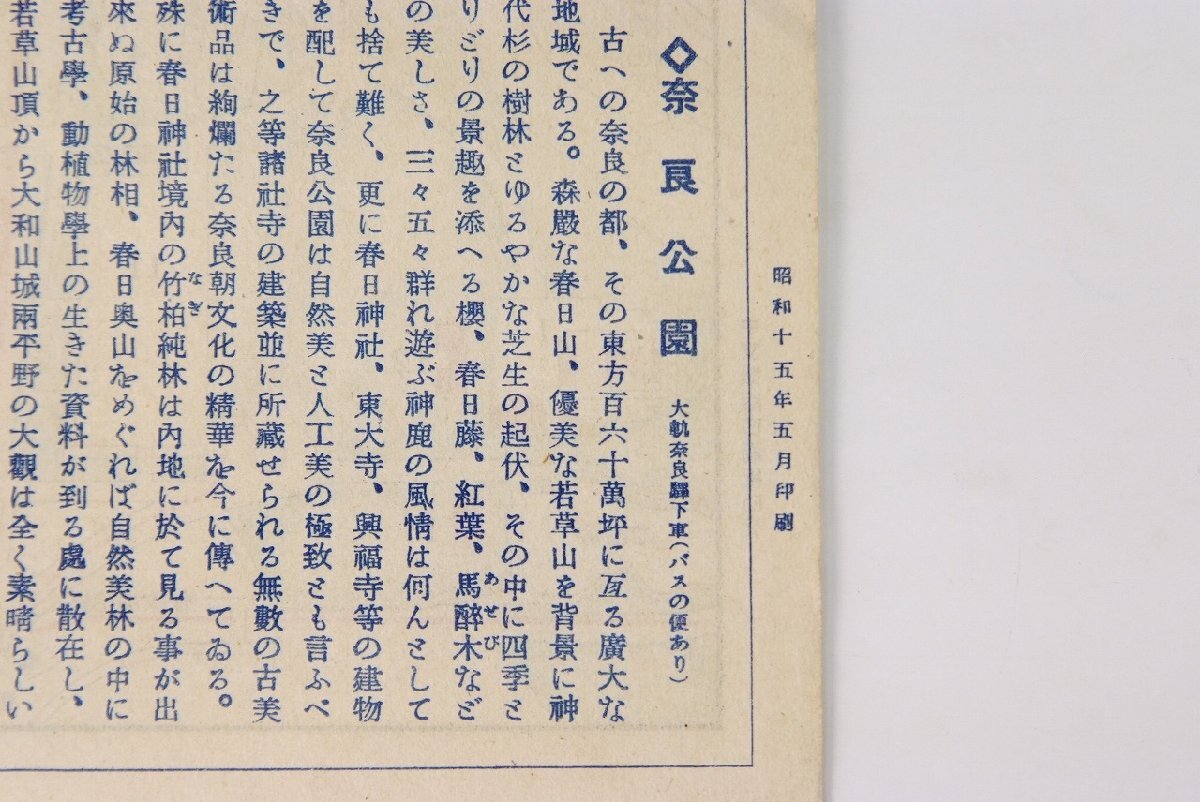 昭和十五年五月印刷
◇奈良公園 大軌奈良驛下車(バスの便あり)
古への奈良の都、その東方百六十萬坪に亙る廣大な
地域である。森嚴な春日山、優美な若草山を背景に神
代杉の樹林とゆるやかな芝生の起伏、その中に四季と
りどりの景趣を添へる櫻、春日藤、紅葉、馬醉木など
あせび
の美しさ、三々五々群れ遊ぶ神鹿の風情は何んとして
も捨て難く、更に春日神社、東大寺、興福寺等の建物
を配して奈良公園は自然美と人工美の極致とも言ふべ
きで、之等諸社寺の建築並に所藏せられる無數の古美
術品は絢爛たる奈良朝文化の精華を今に傳へてゐる。
殊に春日神社境内の竹柏純林は内地に於て見る事が出
なぎ
來ぬ原始の林相、春日奥山をめぐれば自然美林の中に
考古學、動植物學上の生きた資料が到る處に散在し、
若草山頂から大和山城兩平野の大觀は全く素晴らしい